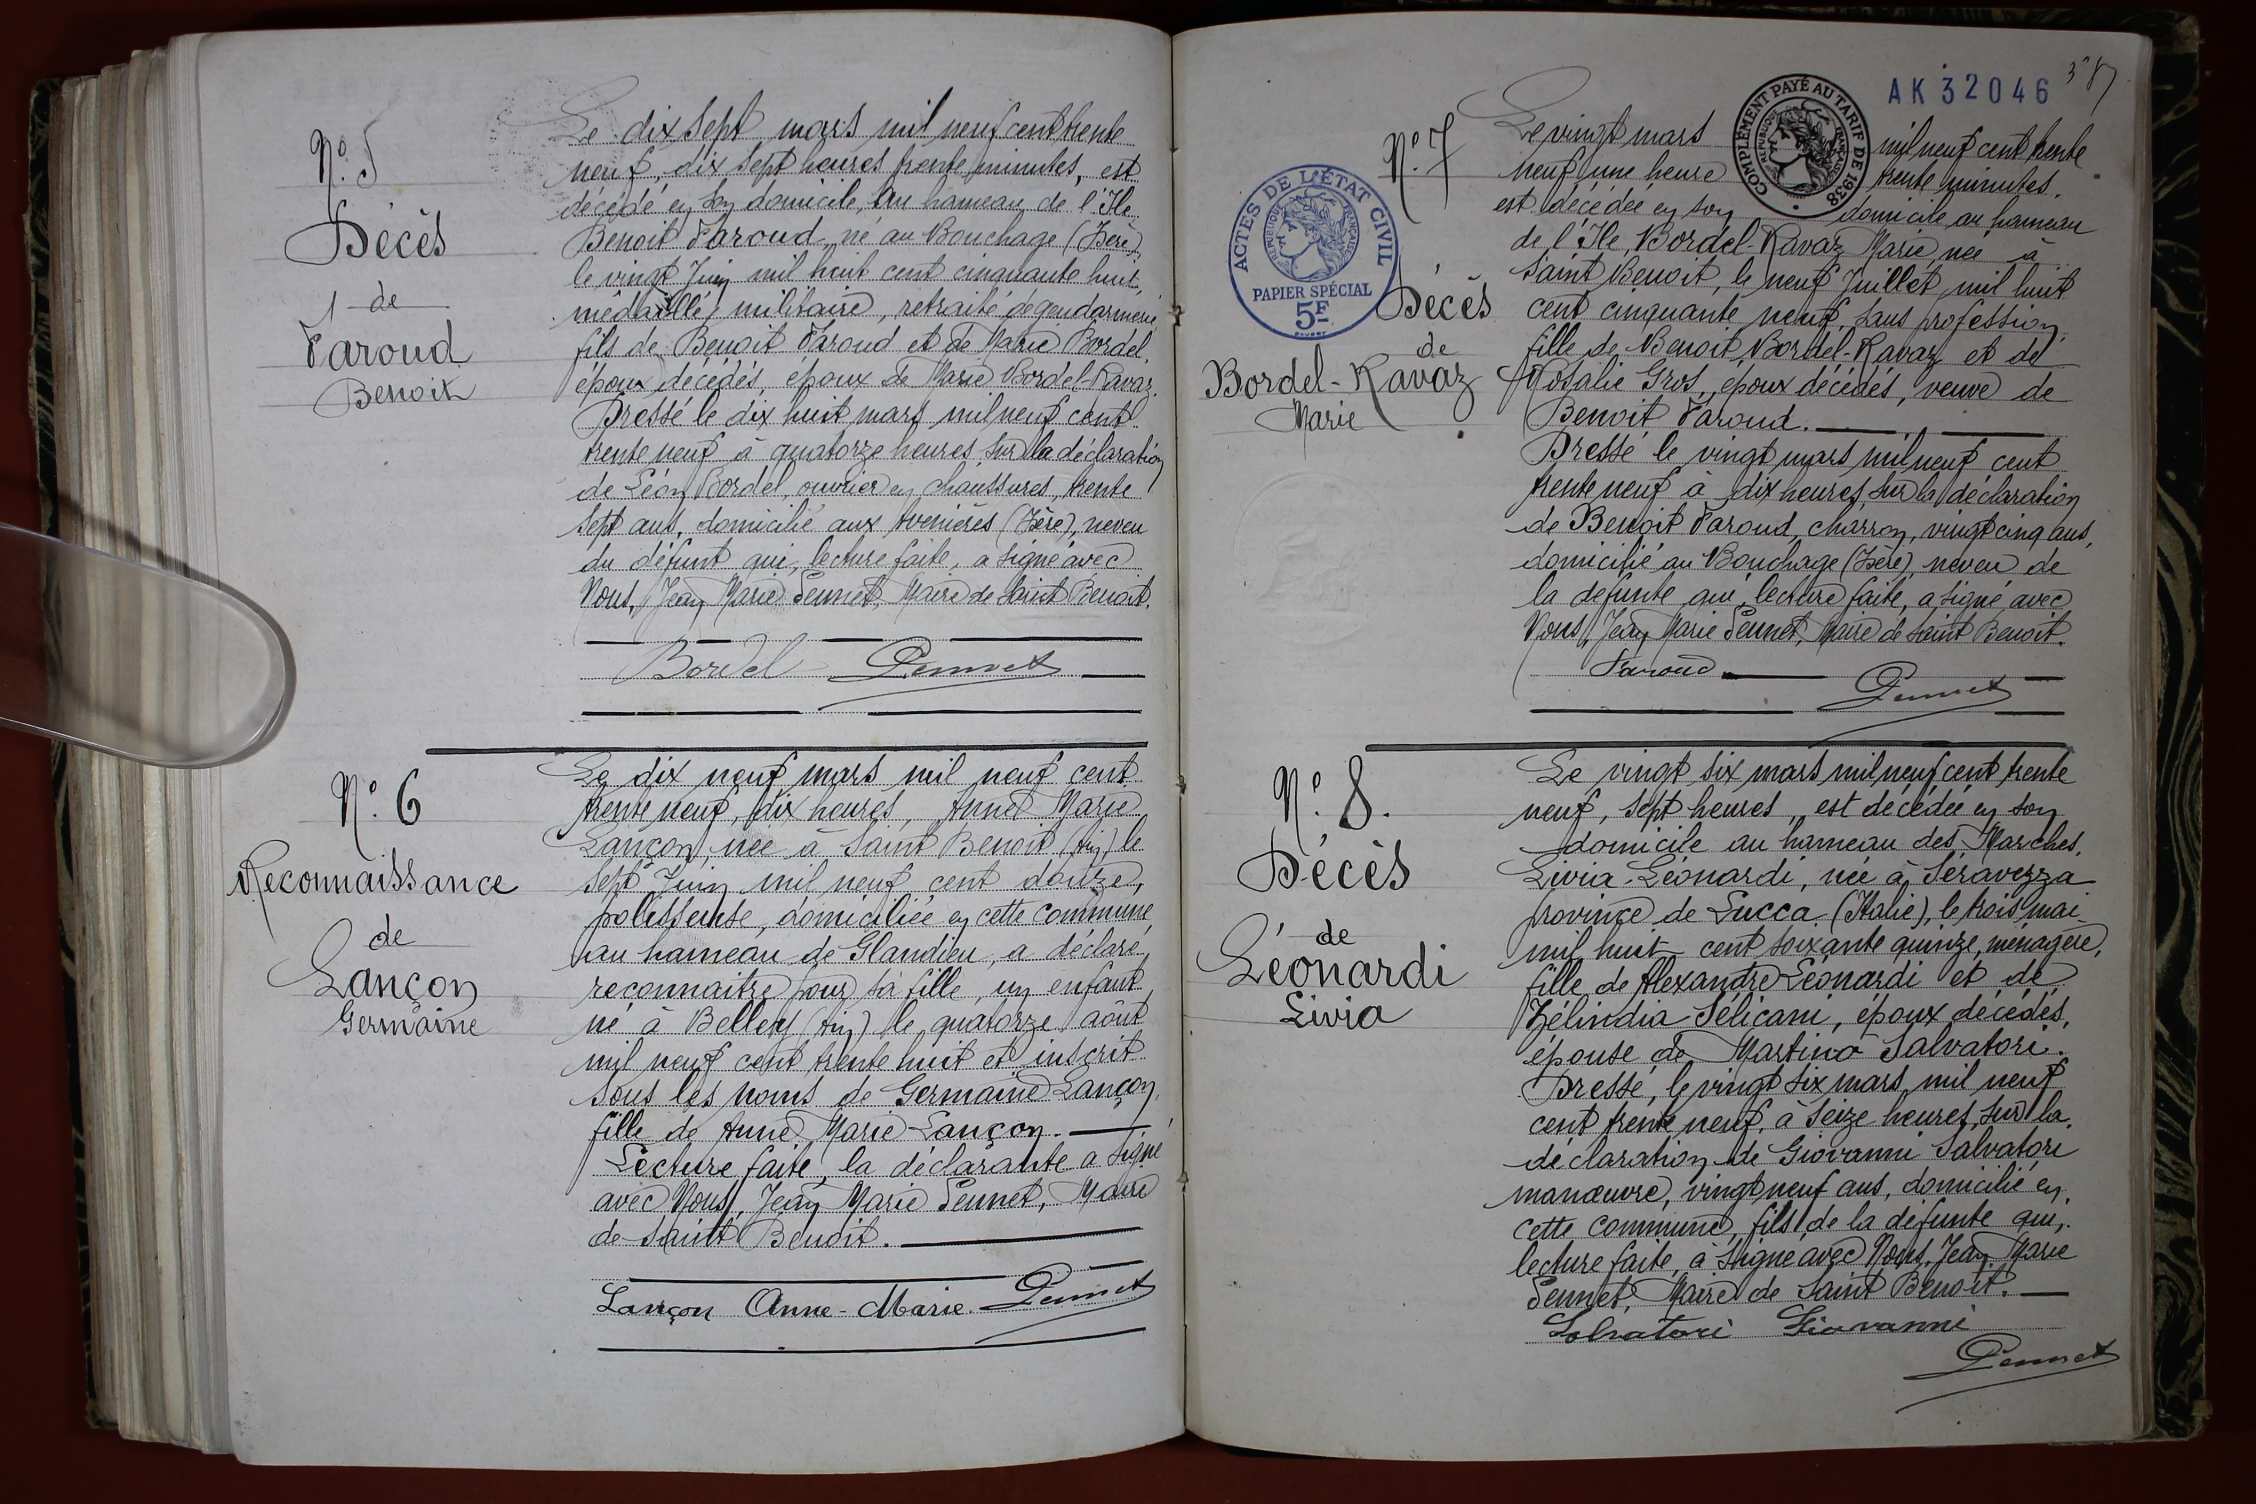 N° 5
Décès
de
Faroud
Benoit
Le dix sept mars mil neuf cent trente
neuf, dix sept heures trente minutes, est
décédé en son domicile, au hameau de l'Ile
Benoit Faroud, né au Bouchage (Isère)
le vingt Juin mil huit cent cinquante huit,
médaillé militaire, retraité de gendarmerie
fils de Benoit Faroud et de Marie Bordel,
époux décédés, époux de Marie Bordel-Ravaz.
Dressé le dix huit mars mil neuf cent
trente neuf à quatorze heures, sur la déclaration
de Léon Bordel, ouvrier en chaussures, trente
sept ans, domicilié aux Avenières (Isère), neveu
du défunt qui, lecture faite, a signé avec
Nous, Jean Marie Pennet, Maire de Saint Benoit.
Bordel Pennet
N° 6
Reconnaissance
de
Lançon
Germaine
Le dix neuf mars mil neuf cent
trente neuf, dix heures, Anne Marie
Lançon, née à Saint Benoit (Ain) le
sept Juin mil neuf cent douze,
polisseuse, domiciliée en cette commune
au hameau de Glandieu, a déclaré
reconnaitre pour sa fille, un enfant
né à Belley (Ain) le quatorze août
mil neuf cent trente huit et inscrit
sous les noms de Germaine Lançon,
fille de Anne Marie Lançon.
Lecture faite, la déclarante a signé
avec Nous, Jean Marie Pennet, Maire
de Saint Benoit.
Lançon Anne-Marie. Pennet
AK 32046
387
COMPLÉMENT PAYÉ AU TARIF DE 1938
RÉPUBLIQUE FRANÇAISE
ACTES DE L'ÉTAT CIVIL
RÉPUBLIQUE FRANÇAISE
PAPIER SPÉCIAL
5F
N° 7
Décès
de
Bordel-Ravaz
Marie
Le vingt mars mil neuf cent trente
neuf une heure trente minutes,
est décédée en son domicile au hameau
de l'Ile, Bordel-Ravaz Marie, née à
Saint Benoit, le neuf Juillet mil huit
cent cinquante neuf, sans profession,
fille de Benoit Bordel-Ravaz et de
Rosalie Gros, époux décédés, veuve de
Benoit Faroud.
Dressé le vingt mars mil neuf cent
trente neuf à dix heures, sur la déclaration
de Benoit Faroud, charron, vingt cinq ans,
domicilié au Bouchage (Isère), neveu de
la défunte qui, lecture faite, a signé avec
Nous, Jean Marie Pennet, Maire de Saint Benoit.
Faroud
Pennet
N° 8.
Décès
de
Léonardi
Livia
Le vingt six mars mil neuf cent trente
neuf, sept heures, est décédée en son
domicile au hameau des Marches,
Livia Léonardi, née à Séravezza
province de Lucca (Italie), le trois mai
mil huit cent soixante quinze, ménagère,
fille de Alexandre Léonardi et de
Zélindia Sélicani, époux décédés,
épouse de Martino Salvatori.
Dressé, le vingt six mars mil neuf
cent trente neuf, à seize heures, sur la
déclaration de Giovanni Salvatori
manœuvre, vingt neuf ans, domicilié en
cette commune, fils de la défunte qui,
lecture faite, a signé avec Nous, Jean Marie
Pennet, Maire de Saint Benoit.
Salvatori Giovanni
Pennet